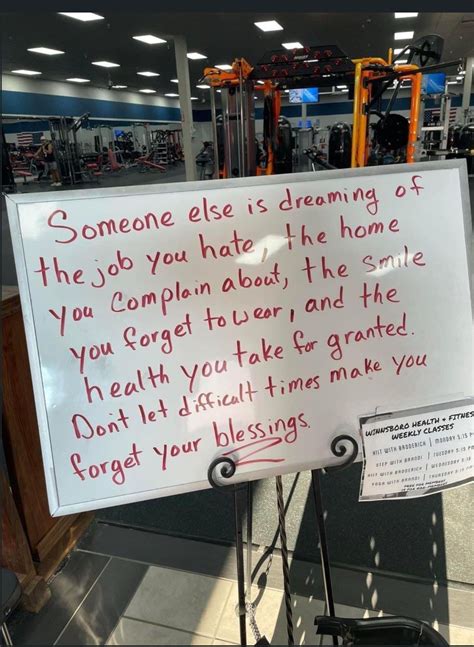 Someone else is dreaming of
the job you hate, the home
you complain about, the smile
you forget to wear, and the
health you take for granted.
Dont let difficult times make you
forget your blessings.
WINNSBORO HEALTH & FITNESS
WEEKLY CLASSES
WITH BRODERICK | MONDAY 5:15
STEP WITH BRANDI | TUESDAY 5:15 PM
WITH BRODERICK | WEDNESDAY 5:15
YOGA WITH BRANDI | THURSDAY